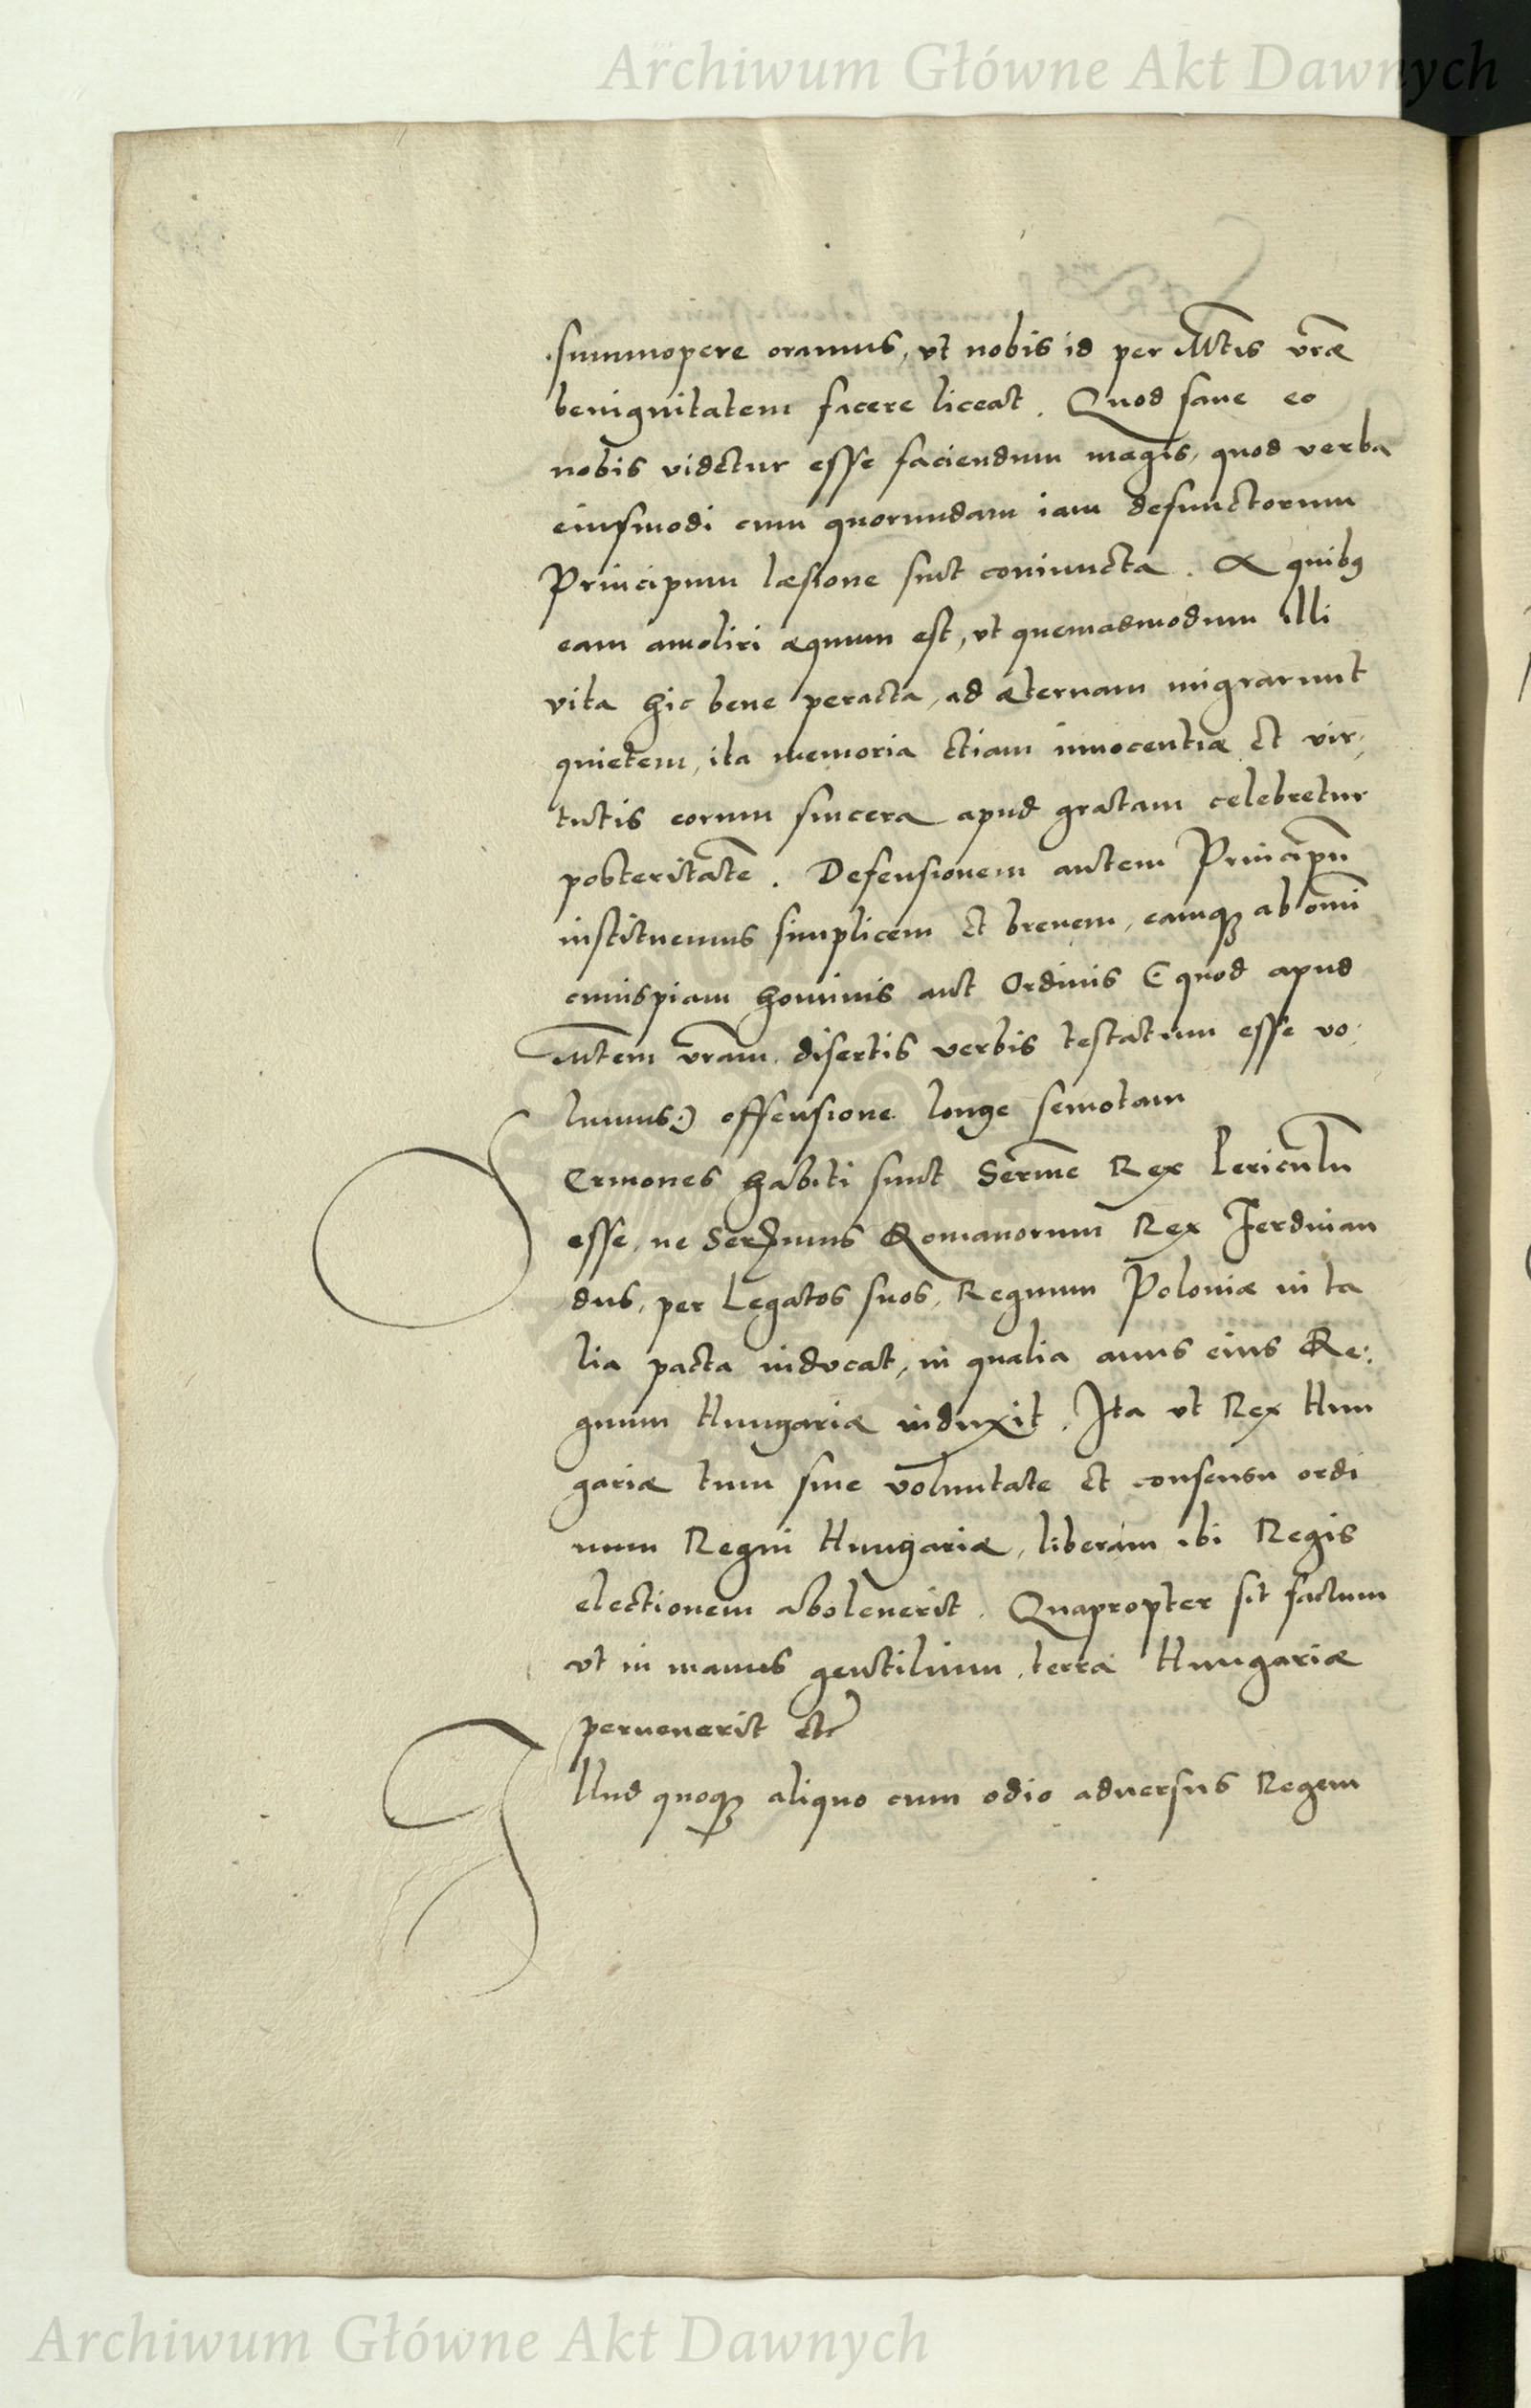 Archiwum Główne Akt Dawnych
summopere oramus, vt nobis id per Mtis vræ
benignitatem facere liceat. Quod sane eo
nobis videtur esse faciendum magis, quod verba
eiusmodi cum quorundam iam defunctorum
Principum læsione sint coniuncta. A quibꝰ
eam amoliri æquum est, vt quemadmodum illi
vita hic bene peracta, ad æternam migrarunt
quietem, ita memoria etiam innocentiæ et vir,
tutis eorum sincera apud gratam celebretur
posteritatē. Defensionem autem Principū
instituemus simplicem et breuem, eamqꝫ ab om̄i
cuiuspiam hominis aut Ordinis (quod apud
Mtem vram disertis verbis testatum esse vo,
lumus:) offensione longe semotam
Sermones habiti sunt Serme Rex Periculū
esse, ne Serenimus Romanorum Rex Ferdinan
dus, per Legatos suos, Regnum Poloniæ in ta
lia pacta inducat, in qualia auus eius Re:
gnum Hungariæ induxit. Ita vt Rex Hun
gariæ tum sine voluntate et consensu ordi
num Regni Hungariæ, liberam ibi Regis
electionem aboleuerit. Quapropter sit factum
vt in manus gentilium, terra Hungariæ
peruenerit etc
Illud quoqꝫ aliquo cum odio aduersus Regem
Archiwum Główne Akt Dawnych